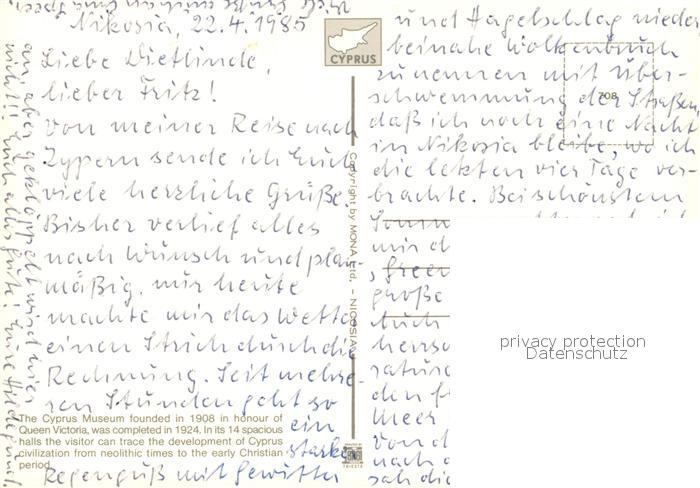 Nikosia, 22.4.1985
Liebe Dietlinde,
lieber Fritz!
Von meiner Reise nach
Zypern sende ich Euch
viele herzliche Grüße.
Bisher verlief alles
nach Wunsch und plan-
mäßig, nur heute
machte mir das Wetter
einen Strich durch die
Rechnung. Seit mehre-
ren Stunden geht so
ein
starker
Regenguß mit Gewitter
und Hagelschlag nieder
beinahe Wolkenbruch
zu nennen mit Über-
schwemmung der Straßen,
daß ich noch eine Nacht
in Nikosia bleibe, wo ich
die letzten vier Tage ver-
brachte. Bei schönstem
Sonn
mir d
große
Auch
herrsc
den
Meer
Von d
nach
sah die
an, aber geklöppelt wird hier
nicht!! Euch alles Gute! Eure Hildegund.
CYPRUS
708
Copyright by MONA Ltd. - NICOSIA
The Cyprus Museum founded in 1908 in honour of
Queen Victoria, was completed in 1924. In its 14 spacious
halls the visitor can trace the development of Cyprus
civilization from neolithic times to the early Christian
period.
TRIESTE
privacy protection
Datenschutz